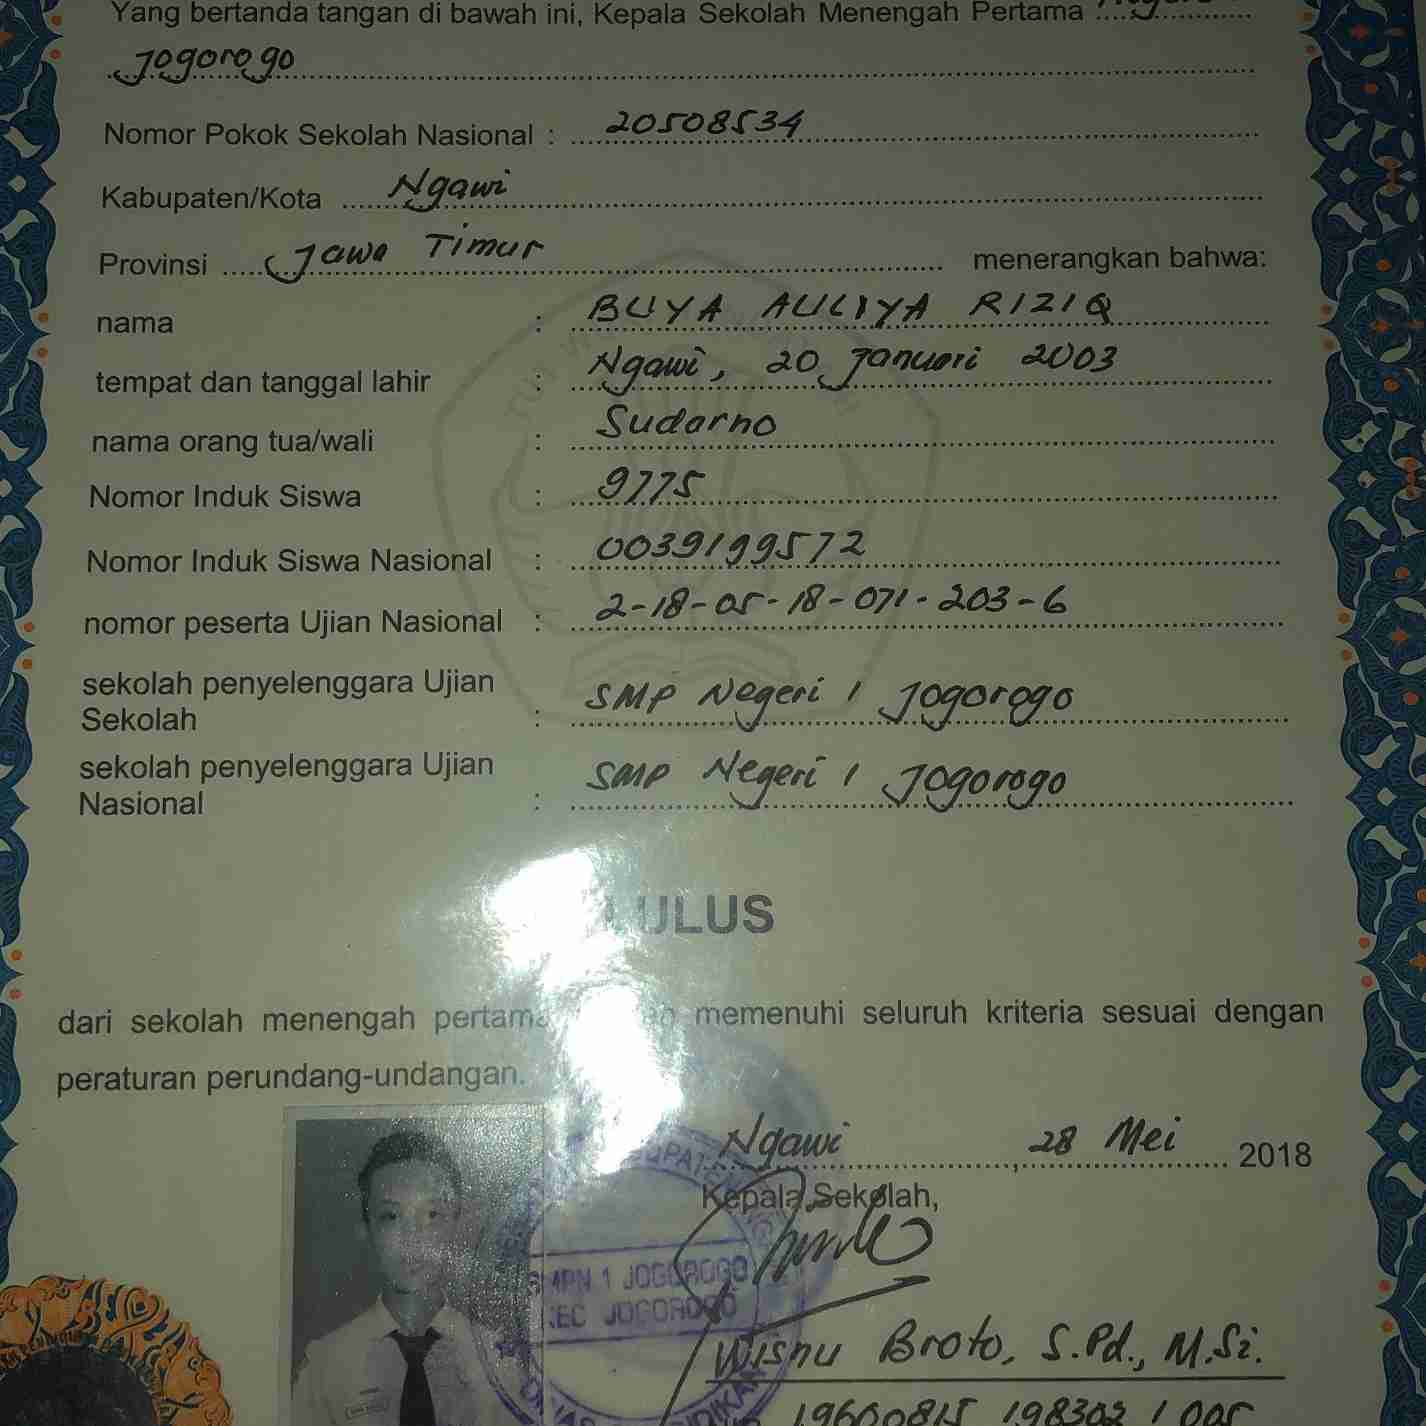 Yang bertanda tangan di bawah ini, Kepala Sekolah Menengah Pertama
Jogorogo
Nomor Pokok Sekolah Nasional : 20508534
Kabupaten/Kota Ngawi
Provinsi Jawa Timur menerangkan bahwa:
nama : BUYA AULIYA RIZIQ
tempat dan tanggal lahir : Ngawi, 20 Januari 2003
nama orang tua/wali : Sudarno
Nomor Induk Siswa : 9775
Nomor Induk Siswa Nasional : 0039199572
nomor peserta Ujian Nasional : 2-18-05-18-071-203-6
sekolah penyelenggara Ujian
Sekolah : SMP Negeri 1 Jogorogo
sekolah penyelenggara Ujian
Nasional : SMP Negeri 1 Jogorogo
LULUS
dari sekolah menengah pertama memenuhi seluruh kriteria sesuai dengan
peraturan perundang-undangan.
Ngawi, 28 Mei 2018
Kepala Sekolah,
SMPN 1 JOGOROGO
KEC JOGOROGO
Wisnu Broto, S.Pd., M.Si.
19600815 198302 1 005